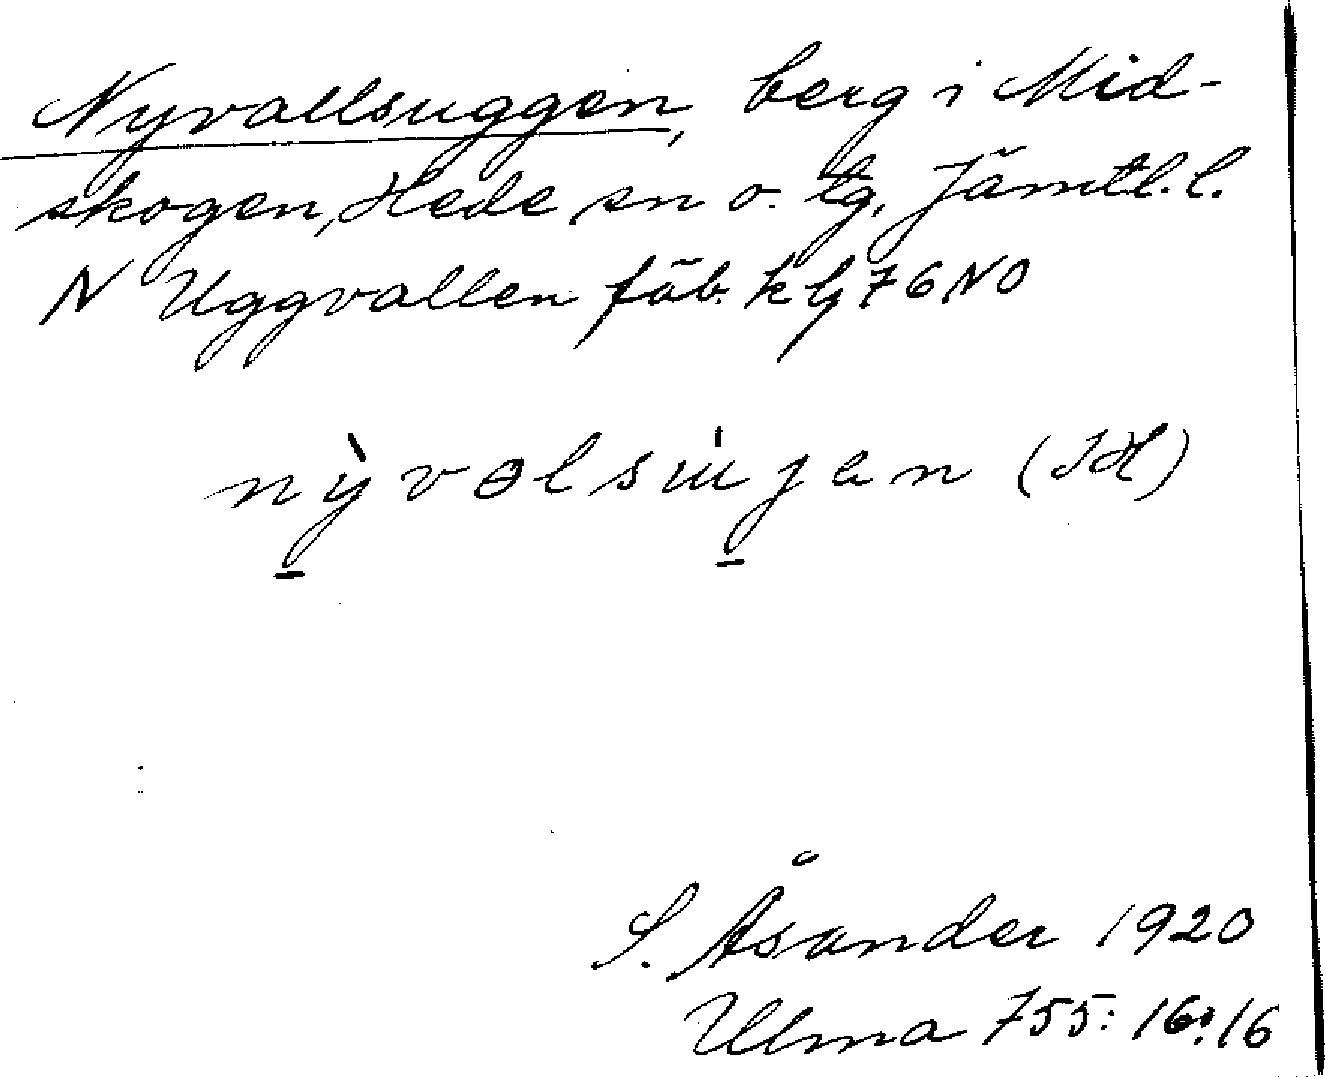 Nyvallsuggen, berg i Mid-
skogen, Hede sn o. tg, Jämtl. l.
N Uggvallen fäb. kbl 76 NO
nỳvalsu̍jen (JH)
S. Åsander 1920
Ulma 755: 16:16